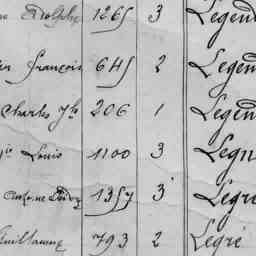 Adolphe 1265 3 Legend
François 645 2 Legen
Charles Jh 206 1 Legen
Louis 1100 3 Legn
Antoine 1357 3 Legr
Guillaume 793 2 Legré